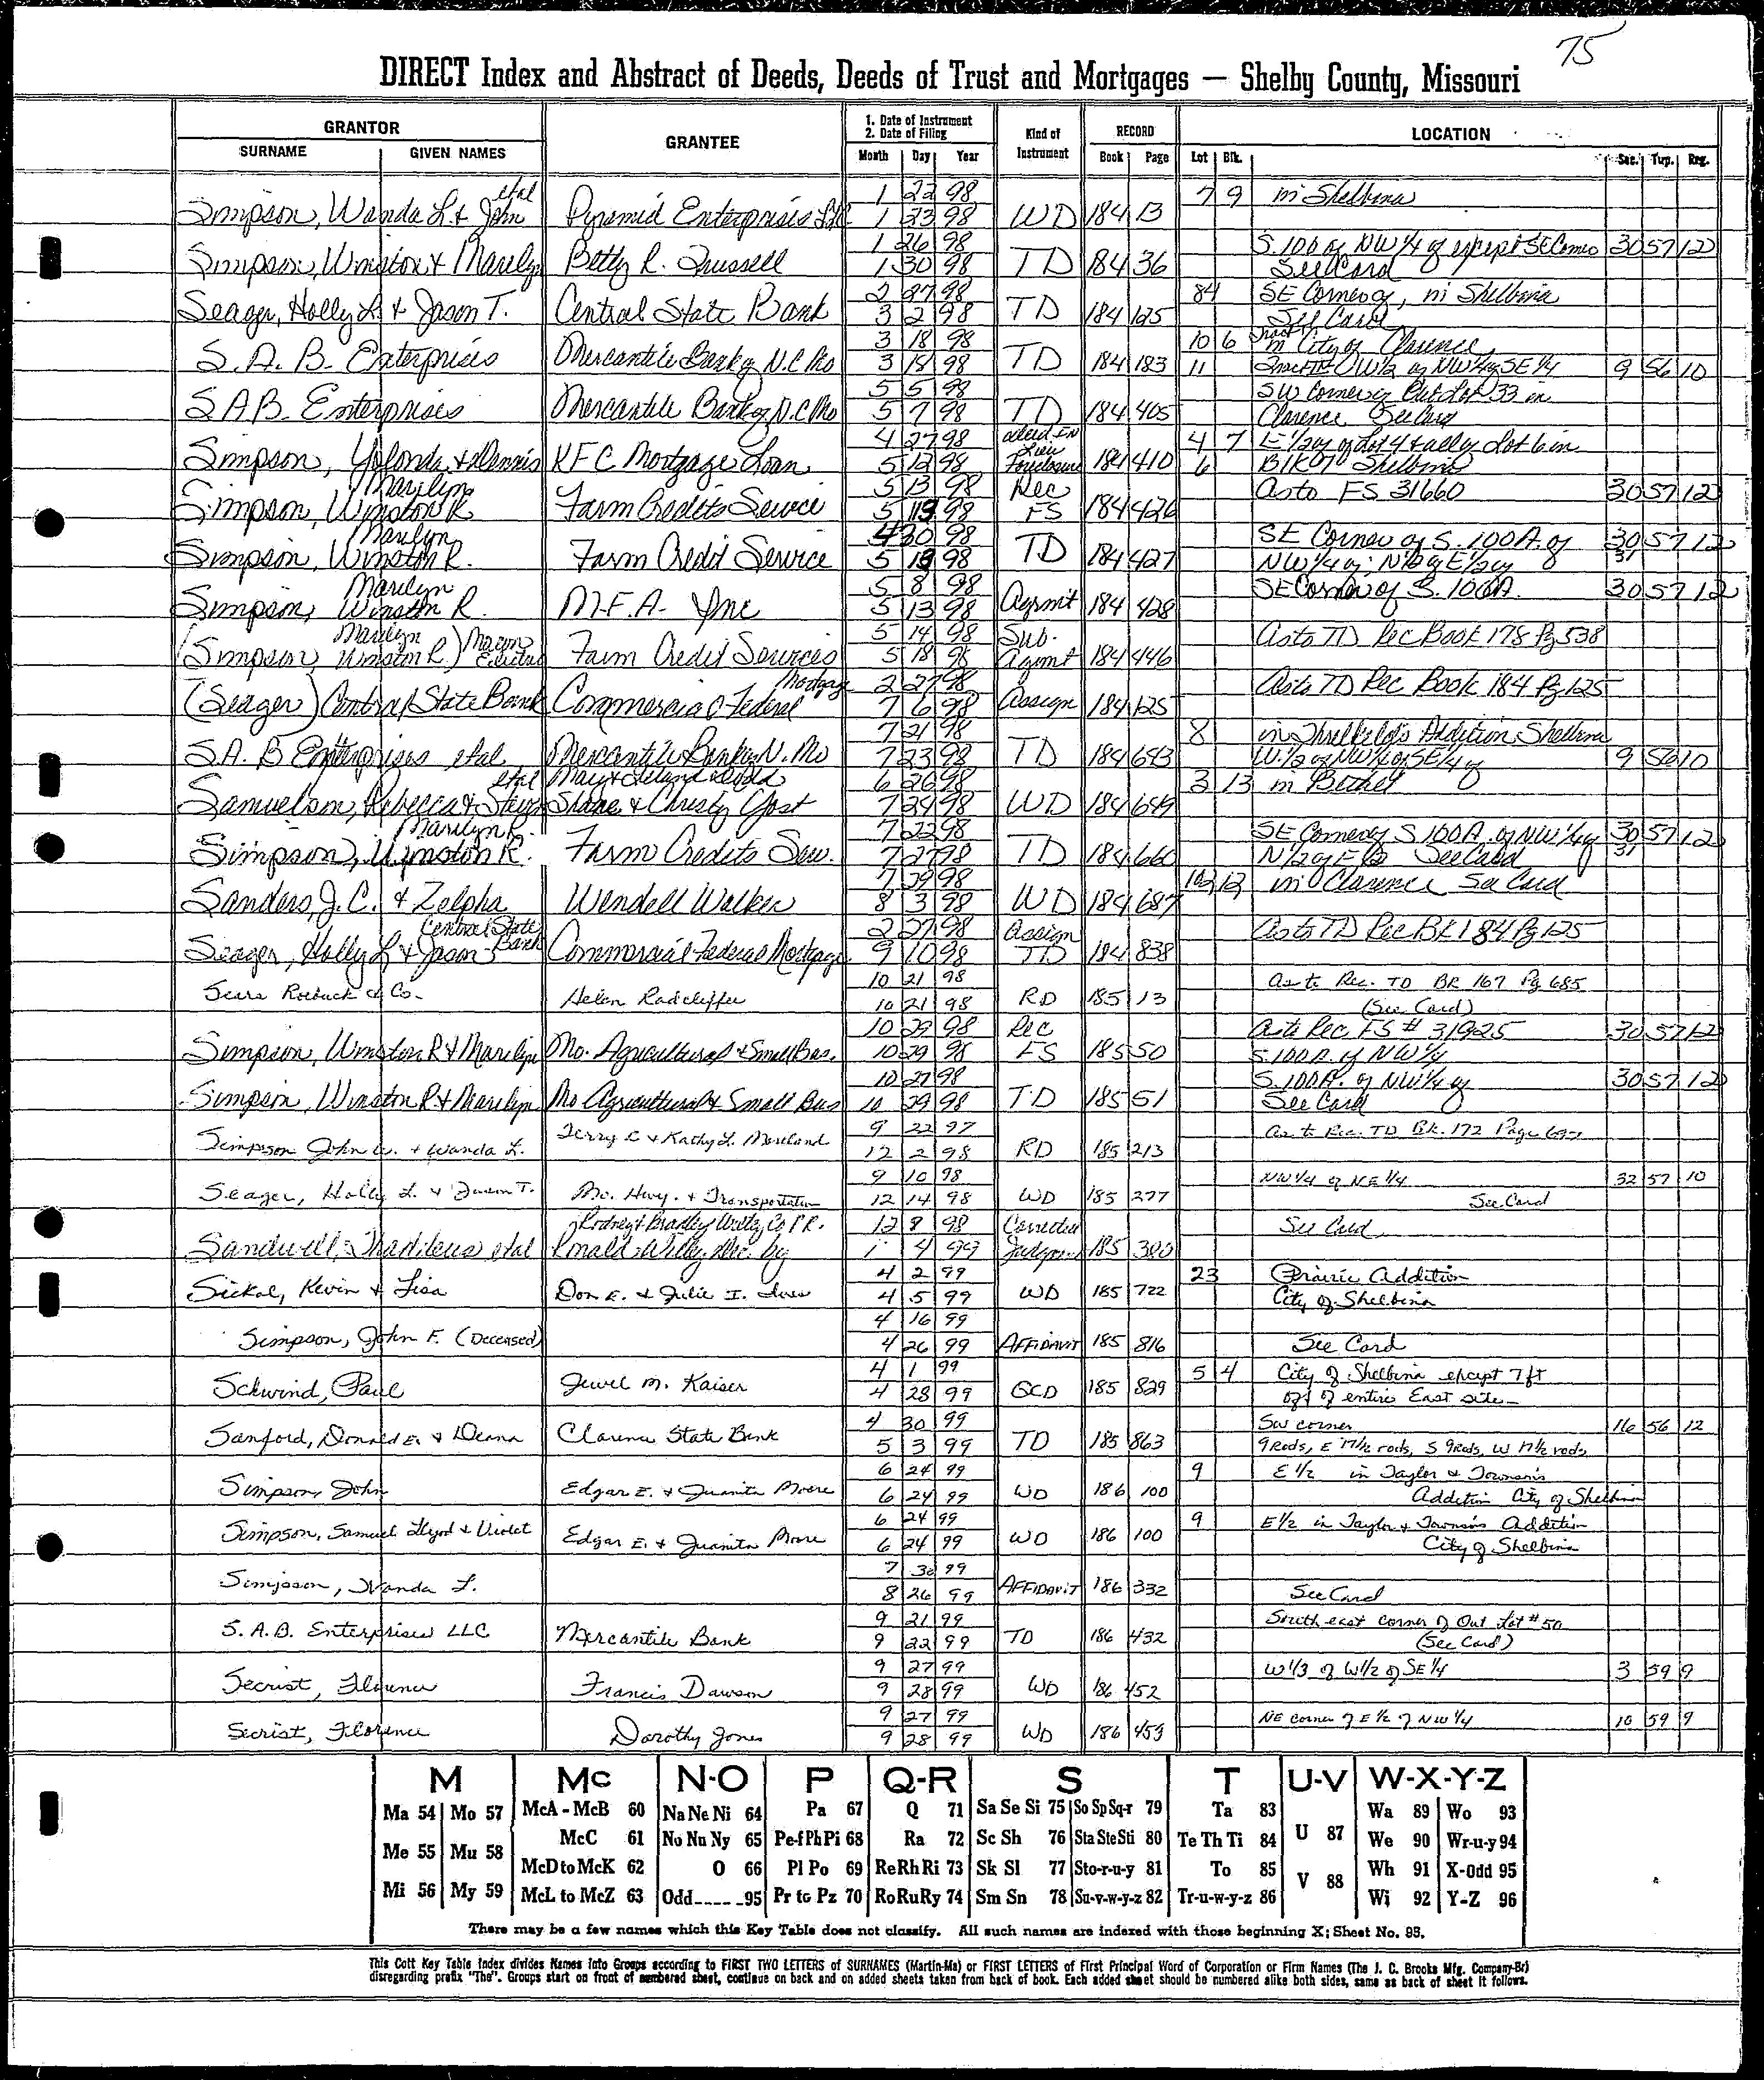 75
DIRECT Index and Abstract of Deeds, Deeds of Trust and Mortgages — Shelby County, Missouri
GRANTOR GRANTEE 1. Date of Instrument 2. Date of Filing Kind of Instrument RECORD LOCATION
SURNAME GIVEN NAMES Month Day Year Book Page Lot Blk. Sec. Twp. Rng.
etal 1 22 98 7 9 in Shelbina
Simpson, Wanda L. & John Pyramid Enterprises Ltd 1 23 98 WD 184 13
1 26 98 S. 100 of NW 1/4 of except SE Corner 30 57 12
Simpson, Winston & Marilyn Betty R. Trussell 1 30 98 TD 184 36 See Card
2 27 98 84 SE Corner of, in Shelbina
Seager, Holly L. & Jason T. Central State Bank 3 2 98 TD 184 125 See Card
3 18 98 10 6 in City of Clarence
S. A. B. Enterprises Mercantile Bank of N.C. Mo 3 18 98 TD 184 183 11 W 1/2 of NW 1/4 of SE 1/4 9 56 10
5 5 98 SW Corner of Out Lot 33 in
S.A.B. Enterprises Mercantile Bank of N.C. Mo 5 7 98 TD 184 405 Clarence See Card
4 27 98 Deed In Lieu 4 7 E 1/2 of Lot 4 & all of Lot 6 in
Simpson, Yolonda & Dennis KFC Mortgage Loan 5 12 98 Foreclosure 184 410 6 Blk 7 Shelbina
Marilyn 5 13 98 Rec As to FS 31660 30 57 12
Simpson, Winston R. Farm Credits Service 5 13 98 FS 184 426
Marilyn 4 30 98 SE Corner of S. 100A. of 30 57 12
Simpson, Winston R. Farm Credit Service 5 13 98 TD 184 427 NW 1/4 of; N 1/2 of E 1/2 of 31
Marilyn 5 8 98 SE Corner of S. 100A. 30 57 12
Simpson, Winston R. M.F.A. Inc 5 13 98 Agrmt 184 428
Marilyn 5 14 98 Sub. As to TD Rec Book 178 Pg 538
(Simpson Winston R.) Macon Electric Farm Credit Services 5 18 98 Agrmt 184 446
Mortgage 2 27 98 As to TD Rec Book 184 Pg 125
(Seager) Central State Bank Commercial Federal 7 6 98 Assign 184 125
7 21 98 8 in Threlkeld's Addition Shelbina
S.A. B Enterprises etal Mercantile Bank of N. Mo 7 23 98 TD 184 643 W. 1/2 of NW 1/4 of SE 1/4 of 9 56 10
etal 6 26 98 3 13 in Bethel
Samuelson, Rebecca & Shane & Christy Yost 7 24 98 WD 184 649
Marilyn R. 7 22 98 SE Corner of S 100A. of NW 1/4 of 30 57 12
Simpson, Winston R. Farm Credits Serv. 7 27 98 TD 184 660 N 1/2 of E 1/2 See Card 31
7 29 98 in Clarence See Card
Sanders, J. C. & Zelpha Wendell Walker 8 3 98 WD 184 687
Central State Bank 2 27 98 Assign As to TD Rec Bk 184 Pg 125
Seager, Holly L & Jason Commercial Federal Mortgage 9 10 98 TD 184 838
10 21 98 As to Rec. TD BK 167 Pg 685
Sears Roebuck & Co. Helen Radcliffe 10 21 98 RD 185 13 (See Card)
10 29 98 Rec As to Rec FS # 31925 30 57 12
Simpson, Winston R & Marilyn Mo. Agricultural & Small Bus. 10 29 98 FS 185 50 S. 100A. of NW 1/4
10 27 98 S. 100A. of NW 1/4 of 30 57 12
Simpson, Winston R & Marilyn Mo Agricultural & Small Bus 10 29 98 TD 185 51 See Card
Terry C & Kathy L. Moreland 9 22 97 As to Rec. TD Bk. 172 Page
Simpson John W. & Wanda L. 12 2 98 RD 185 213
9 10 98 NW 1/4 of NE 1/4 32 57 10
Seager, Holly L. & Jason T. Mo. Hwy. & Transportation 12 14 98 WD 185 277 See Card
Rodney & Bradley Willey Co P.R. 12 8 98 Corrected See Card
Sandwell, Thaddeus etal Ronald Willey Dec. by 1 4 99 Judgment 185 300
4 2 99 23 Prairie Addition
Sickal, Kevin & Lisa Don E. & Julie I. 4 5 99 WD 185 722 City of Shelbina
4 16 99
Simpson, John F. (Deceased) 4 26 99 AFFIDAVIT 185 816 See Card
4 1 99 5 4 City of Shelbina except 7 ft
Schwind, Paul Jewel M. Kaiser 4 28 99 QCD 185 829 off of entire East side
4 30 99 SW corner 16 56 12
Sanford, Donald E. & Deana Clarence State Bank 5 3 99 TD 185 863 9 Rods, E 17 1/2 rods, S 9 Rods, W 17 1/2 rods
6 24 99 9 E 1/2 in Taylor & Townsin's
Simpson, John Edgar E. & Juanita Moore 6 24 99 WD 186 100 Addition City of Shelbina
6 24 99 9 E 1/2 in Taylor & Townsin's Addition
Simpson, Samuel Llyod & Violet Edgar E. & Juanita Moore 6 24 99 WD 186 100 City of Shelbina
7 30 99
Simpson, Wanda L. 8 26 99 AFFIDAVIT 186 332 See Card
9 21 99 South east corner of Out Lot # 50
S. A. B. Enterprises LLC Mercantile Bank 9 22 99 TD 186 432 (See Card)
9 27 99 W 1/3 of W 1/2 of SE 1/4 3 59 9
Secrist, Florence Francis Dawson 9 28 99 WD 186 452
9 27 99 NE corner of E 1/2 of NW 1/4 10 59 9
Secrist, Florence Dorothy Jones 9 28 99 WD 186 453
M Mc N-O P Q-R S T U-V W-X-Y-Z
Ma 54 Mo 57 McA - McB 60 Na Ne Ni 64 Pa 67 Q 71 Sa Se Si 75 So Sp Sq-r 79 Ta 83 Wa 89 Wo 93
Me 55 Mu 58 McC 61 No Nu Ny 65 Pe-f Ph Pi 68 Ra 72 Sc Sh 76 Sta Ste Sti 80 Te Th Ti 84 U 87 We 90 Wr-u-y 94
McD to McK 62 O 66 Pl Po 69 Re Rh Ri 73 Sk Sl 77 Sto-r-u-y 81 To 85 V 88 Wh 91 X-Odd 95
Mi 56 My 59 McL to McZ 63 Odd 95 Pr to Pz 70 Ro Ru Ry 74 Sm Sn 78 Su-v-w-y-z 82 Tr-u-w-y-z 86 Wi 92 Y-Z 96
There may be a few names which this Key Table does not classify. All such names are indexed with those beginning X; Sheet No. 95.
This Cott Key Table Index divides Names into Groups according to FIRST TWO LETTERS of SURNAMES (Martin-Ma) or FIRST LETTERS of First Principal Word of Corporation or Firm Names (The J. C. Brooks Mfg. Company-Br)
disregarding prefix "The". Groups start on front of numbered sheet, continue on back and on added sheets taken from back of book. Each added sheet should be numbered alike both sides, same as back of sheet it follows.